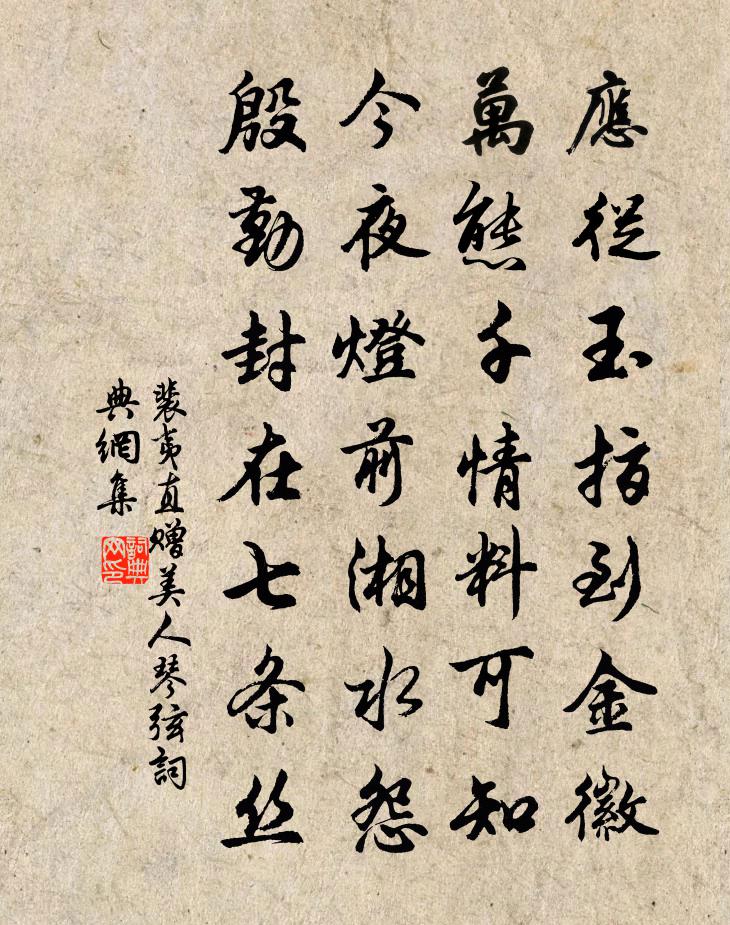 應從玉指到金徽
萬態千情料可知
今夜燈前湘水怨
殷勤封在七条丝
裴夷直赠美人琴弦詞
典網集
詞典
网印